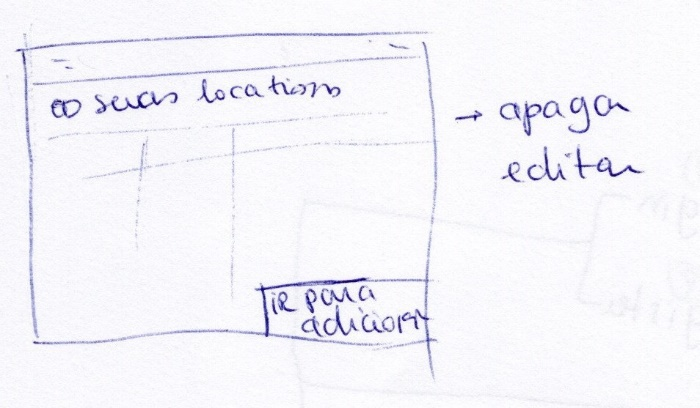 as suas locations
→ apagar
editar
ir para
adicionar